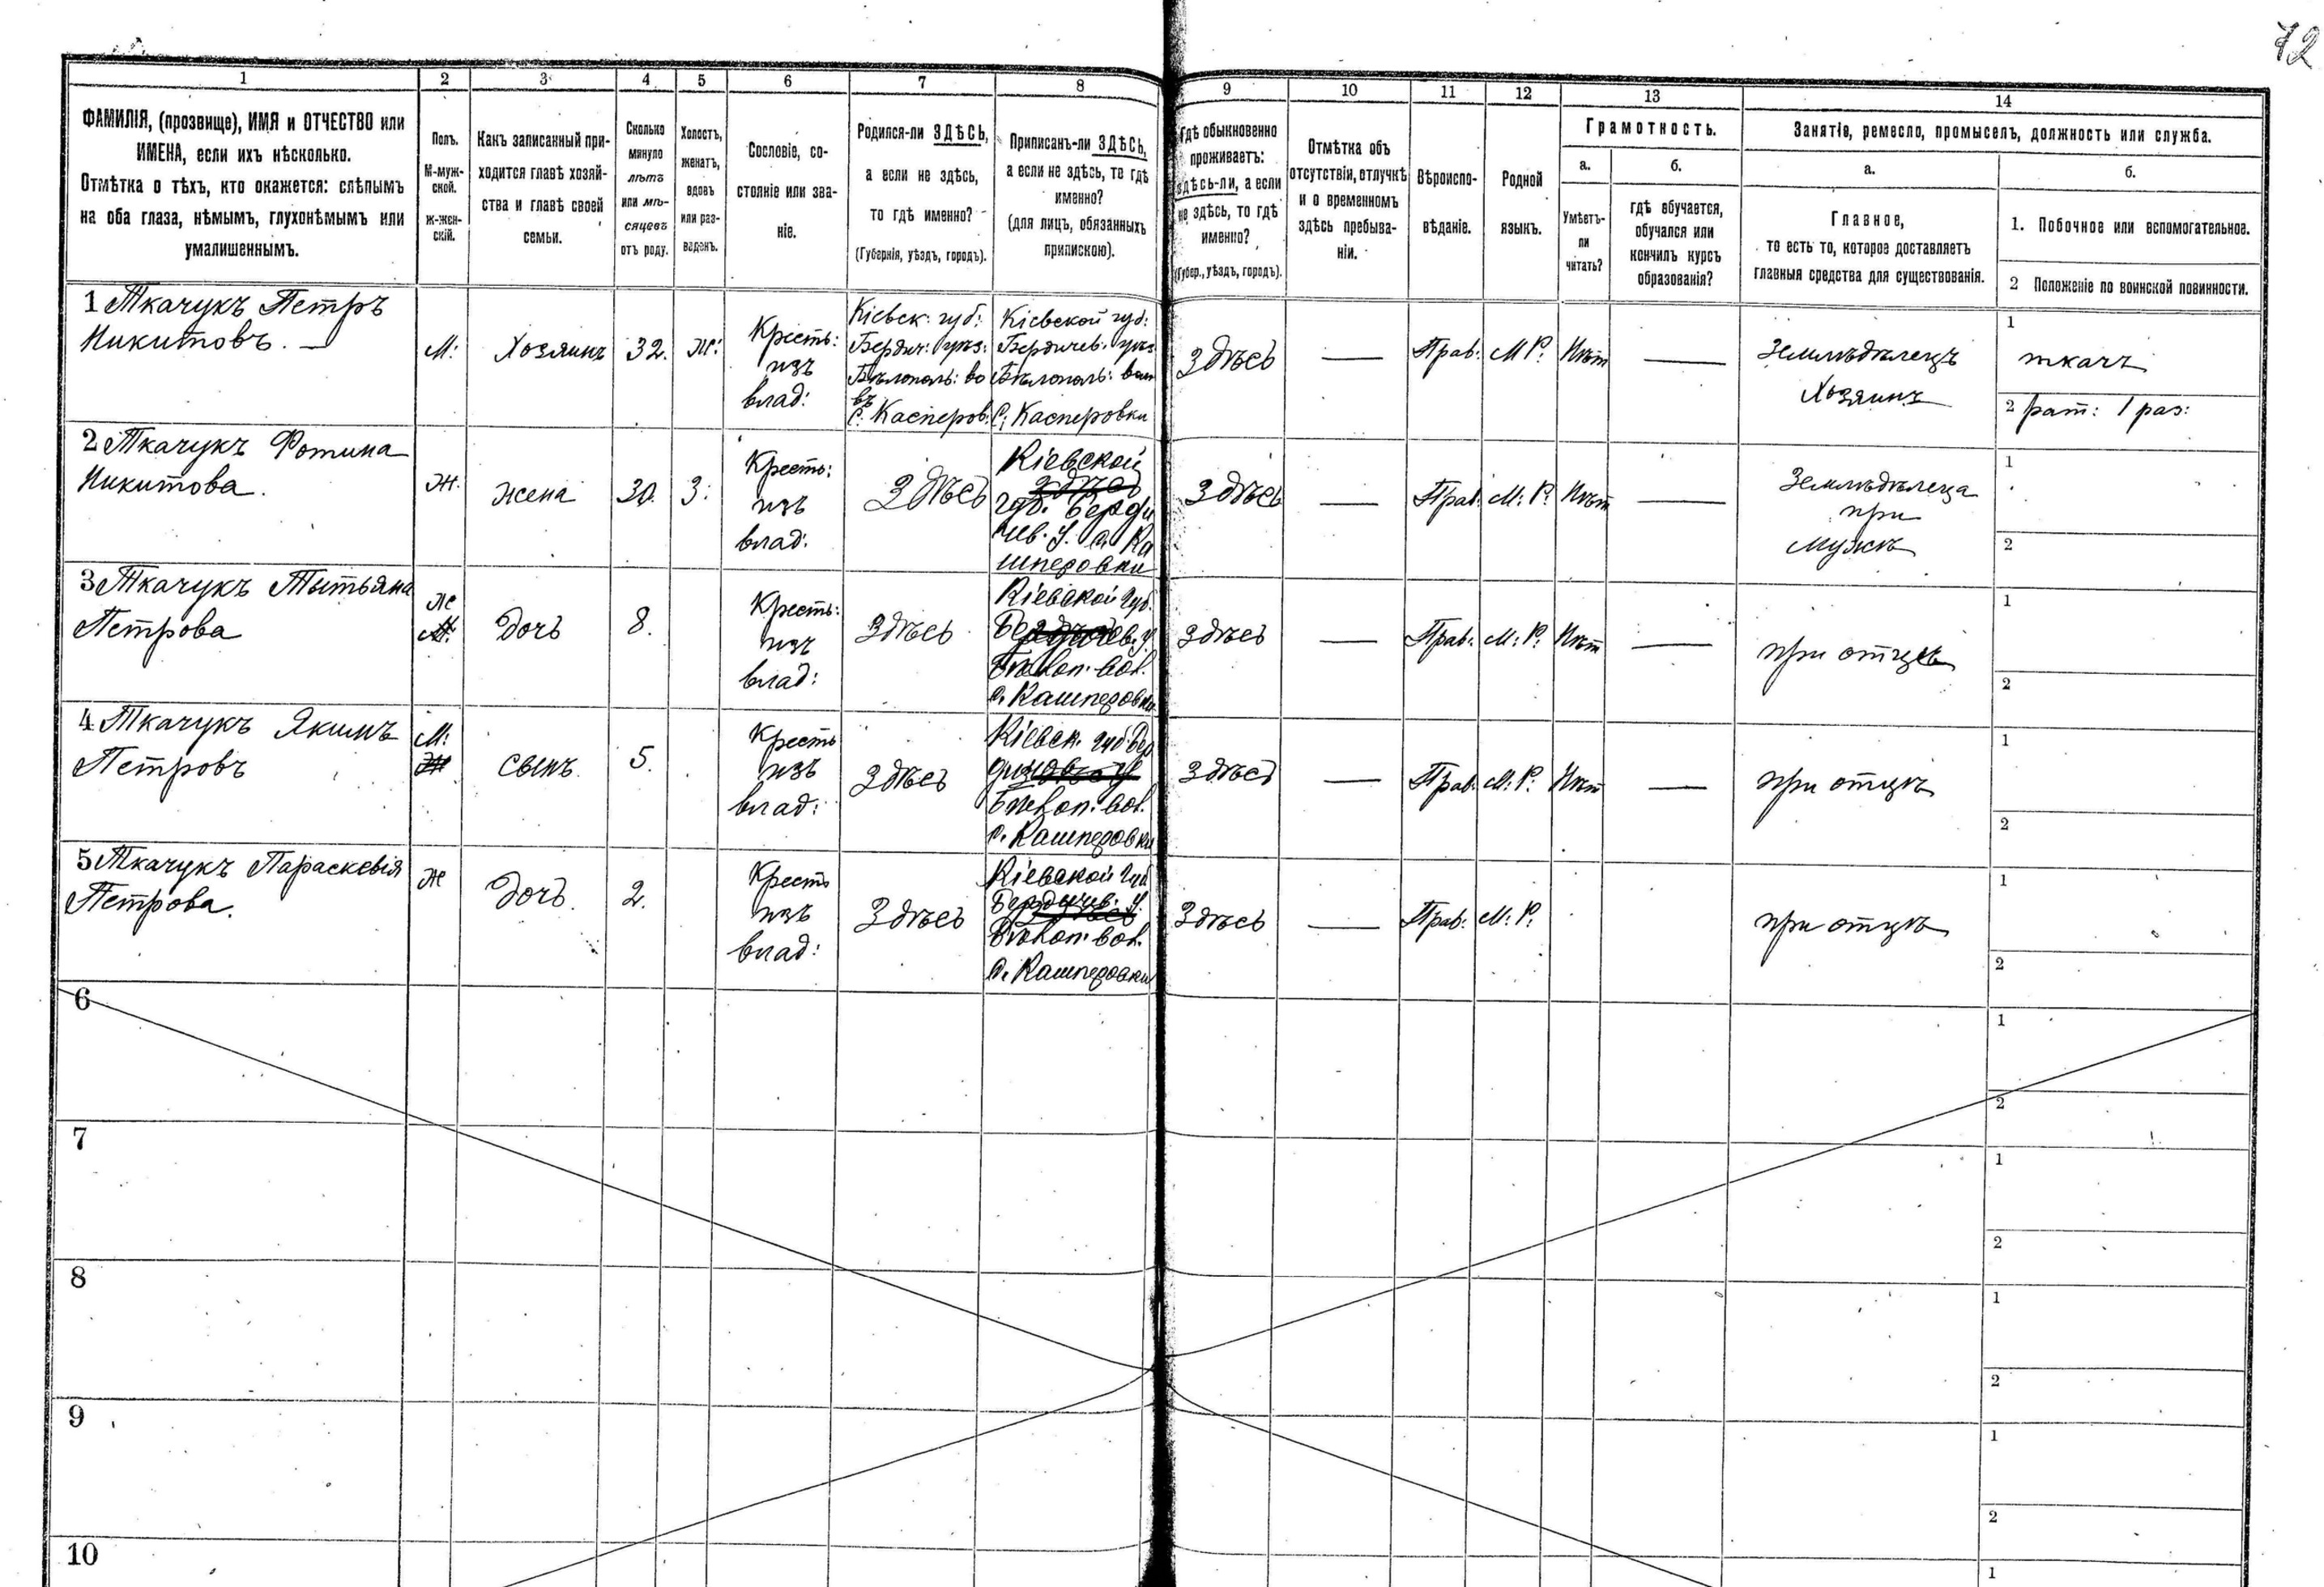 72
1 2 3 4 5 6 7 8 9 10 11 12 13 14
ФАМИЛІЯ, (прозвище), ИМЯ и ОТЧЕСТВО или
ИМЕНА, если ихъ нѣсколько.
Отмѣтка о тѣхъ, кто окажется: слѣпымъ
на оба глаза, нѣмымъ, глухонѣмымъ или
умалишеннымъ.
Полъ.
М-муж-
ской.
ж-жен-
скій.
Какъ записанный при-
ходится главѣ хозяй-
ства и главѣ своей
семьи.
Сколько
минуло
лѣтъ
или мѣ-
сяцевъ
отъ роду.
Холостъ,
женатъ,
вдовъ
или раз-
веденъ.
Сословіе, со-
стояніе или зва-
ніе.
Родился-ли ЗДѢСЬ,
а если не здѣсь,
то гдѣ именно?
(Губернія, уѣздъ, городъ).
Приписанъ-ли ЗДѢСЬ,
а если не здѣсь, то гдѣ
именно?
(для лицъ, обязанныхъ
припискою).
Гдѣ обыкновенно
проживаетъ:
здѣсь-ли, а если
не здѣсь, то гдѣ
именно?
(Губер., уѣздъ, городъ).
Отмѣтка объ
отсутствіи, отлучкѣ
и о временномъ
здѣсь пребыва-
ніи.
Вѣроиспо-
вѣданіе.
Родной
языкъ.
Грамотность.
а.
Умѣетъ-
ли
читать?
б.
гдѣ обучается,
обучался или
кончилъ курсъ
образованія?
Занятіе, ремесло, промыселъ, должность или служба.
а.
Главное,
то есть то, которое доставляетъ
главныя средства для существованія.
б.
1. Побочное или вспомогательное.
2 Положеніе по воинской повинности.
1 Ткачукъ Петръ
Никитовъ. —
М:
Хозяинъ
32.
Ж:
Кресть:
изъ
влад:
Кіевск: губ:
Бердич: уѣз:
Бѣлополь: во
въ
С: Касперов:
Кіевской губ:
Бердичев: уѣз
Бѣлополь: вол
С: Касперовки
Здѣсь
—
Прав:
М Р:
Нѣт
—
Землѣдѣлецъ
Хозяинъ
1
ткачъ
2 рат: 1 раз:
2 Ткачукъ Фотина
Никитова.
Ж.
жена
30.
З:
Кресть:
изъ
влад:
Здѣсь
Кіевской
здѣсь
губ. Берди
чев. у. с. Ка
шперовки
Здѣсь
—
Прав:
М: Р:
Нѣт
—
Землѣдѣлеца
при
мужѣ
1
2
3 Ткачукъ Тытьяна
Петрова
Ж
М:
дочь
8.
Кресть:
изъ
влад:
Здѣсь
Кіевской губ.
Бердичев. у.
Бѣлоп. вол.
с. Кашперовки
Здѣсь
—
Прав:
М: Р:
Нѣт
—
при отцѣ
1
2
4 Ткачукъ Якимъ
Петровъ
М:
Ж
сынъ
5.
Кресть
изъ
влад:
Здѣсь
Кіевск. губ. Бер
Бѣлоп. вол.
с. Кашперовки
Здѣсь
—
Прав:
М: Р:
Нѣт
—
при отцѣ
1
2
5 Ткачукъ Параскевія
Петрова.
Ж
дочь
2.
Кресть
изъ
влад:
Здѣсь
Кіевской губ
Бердичев. у.
Бѣлоп. вол.
с. Кашперовки
Здѣсь
—
Прав:
М: Р:
при отцѣ
1
2
6
1
2
7
1
2
8
1
2
9
1
2
10
1